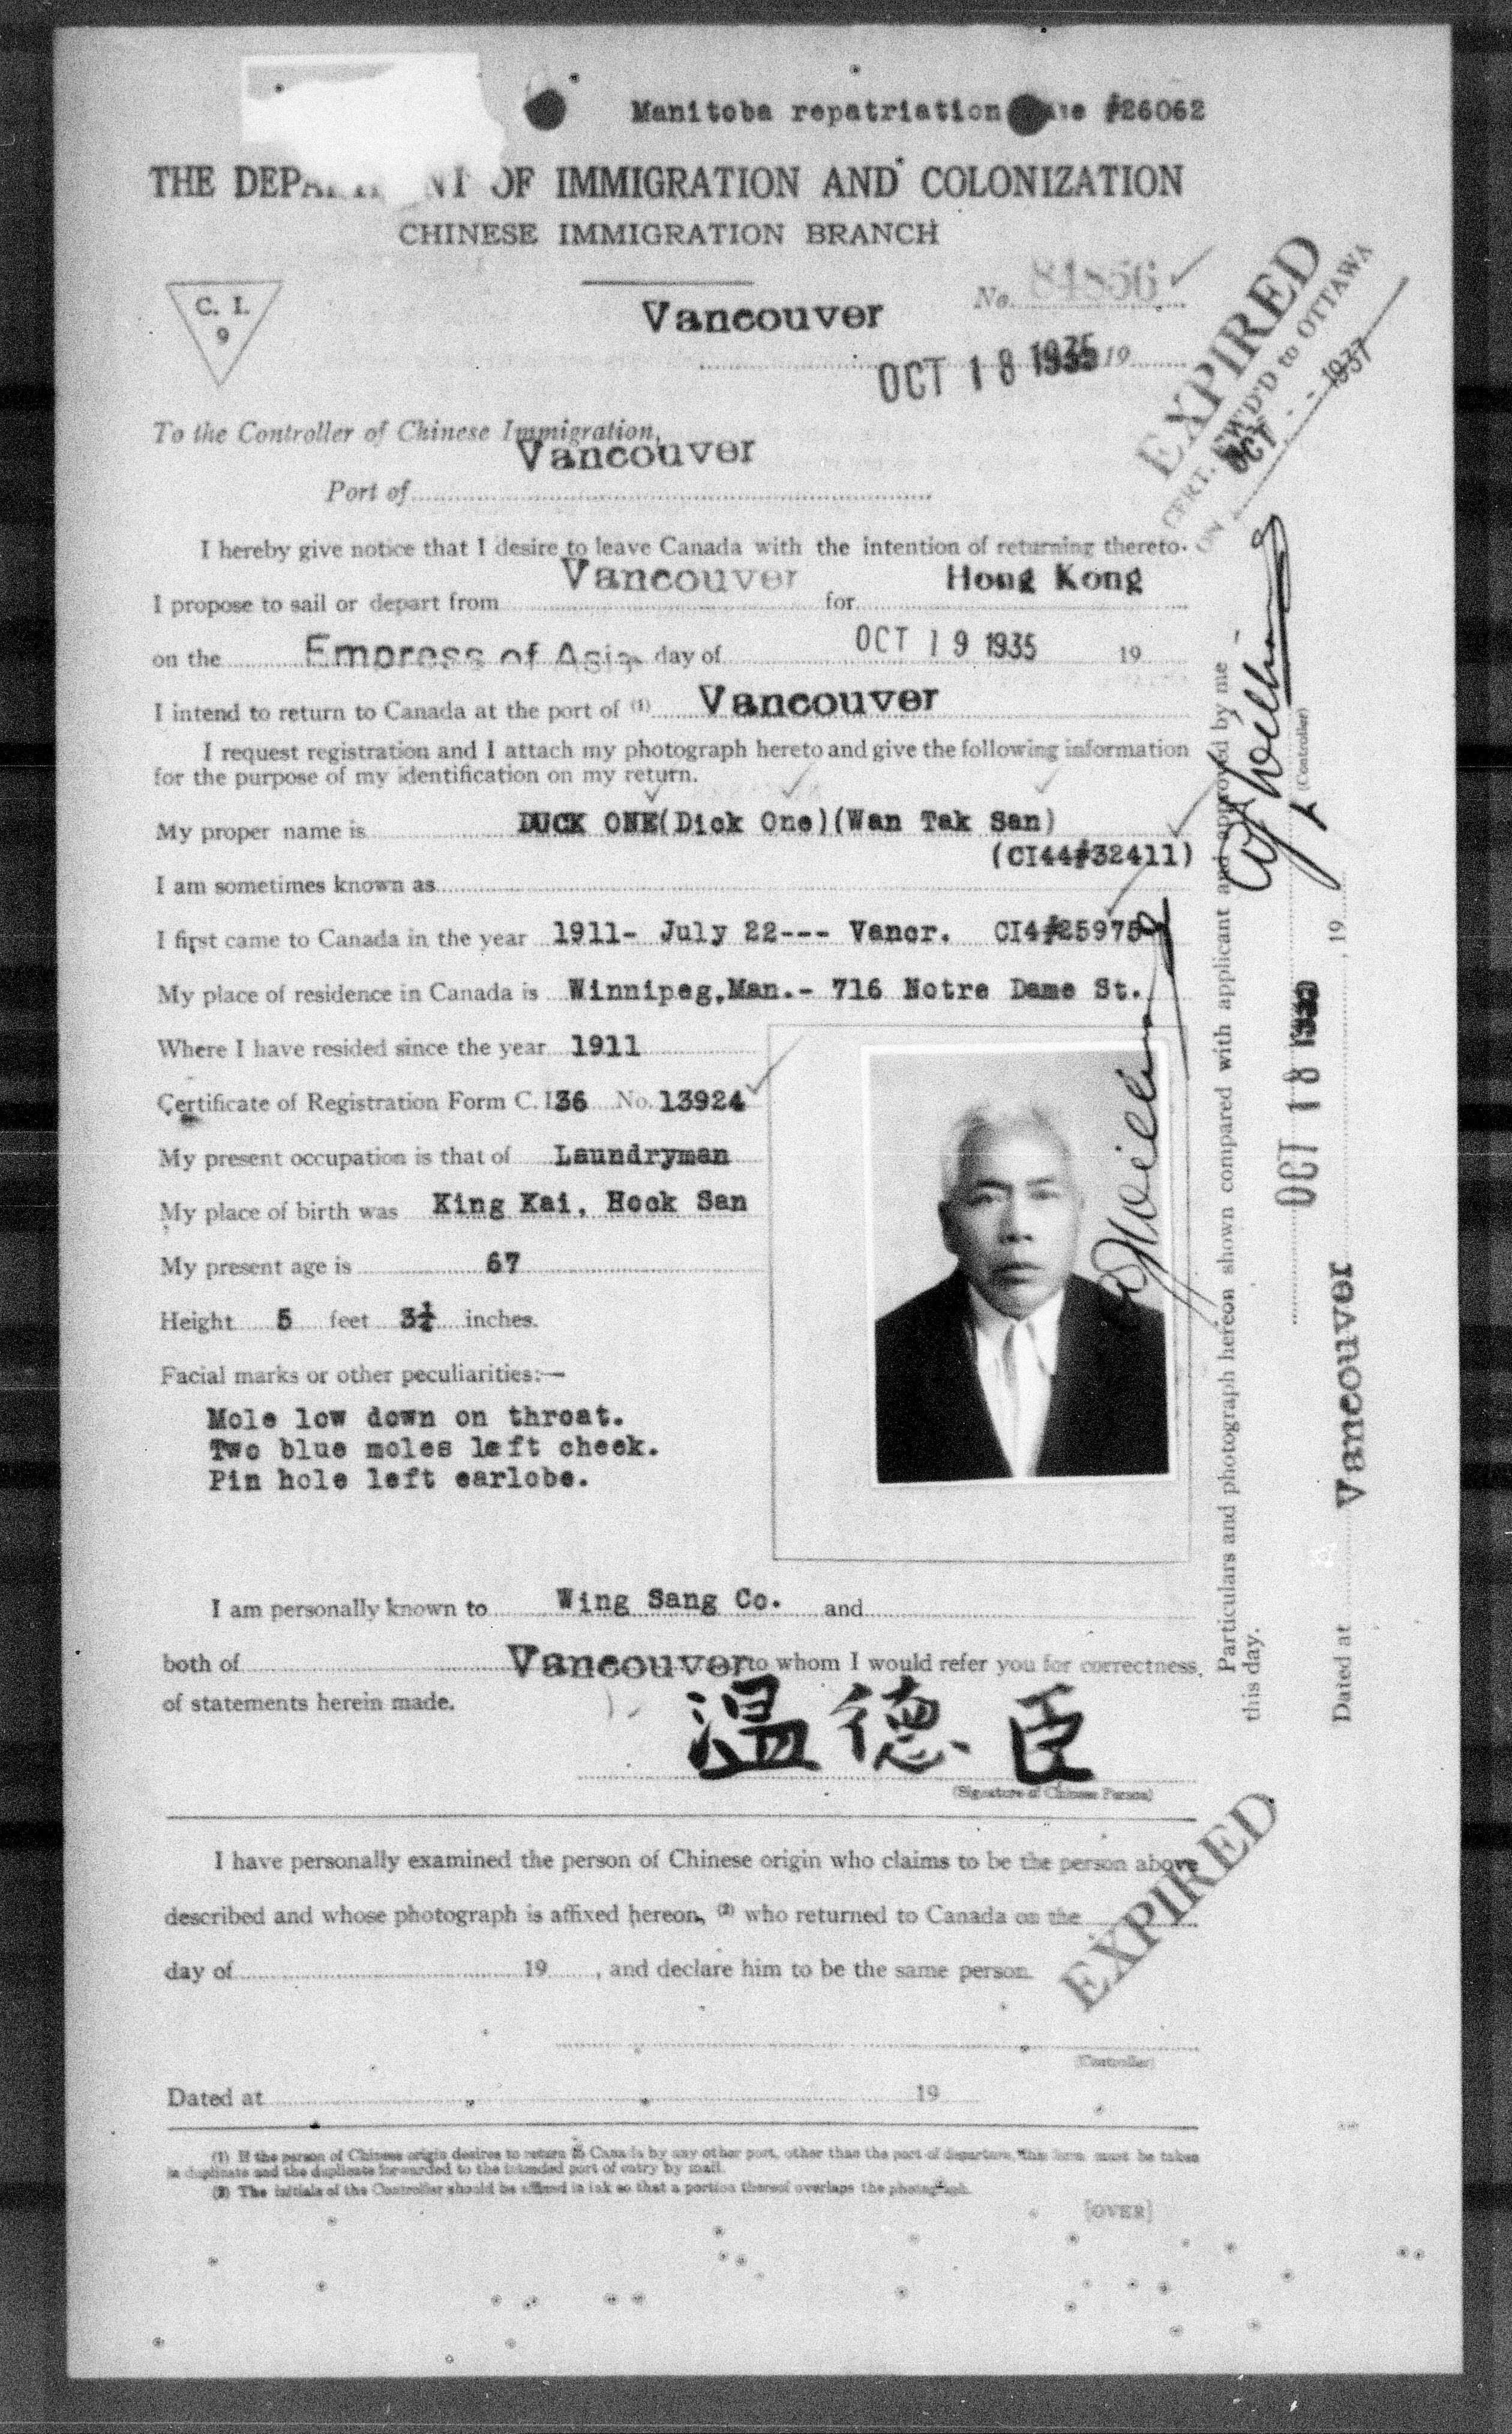 Manitoba repatriation #26062
THE OF IMMIGRATION AND COLONIZATION
CHINESE IMMIGRATION BRANCH
C. I.
9
No.
Vancouver
OCT 18 1935 19
EXPIRED
CERT. FWD'D to OTTAWA
ON OCT - - 1937
To the Controller of Chinese Immigration,
Vancouver
Port of
I hereby give notice that I desire to leave Canada with the intention of returning thereto.
I propose to sail or depart from Vancouver for Hong Kong
on the Empress of Asia day of OCT 19 1935 19
I intend to return to Canada at the port of (1) Vancouver
I request registration and I attach my photograph hereto and give the following information
for the purpose of my identification on my return.
My proper name is DUCK ONE(Dick One)(Wan Tak San)
(CI44#32411)
I am sometimes known as
I first came to Canada in the year 1911- July 22--- Vancr. CI4#25975
My place of residence in Canada is Winnipeg,Man.- 716 Notre Dame St.
Where I have resided since the year 1911
Certificate of Registration Form C. I36 No. 13924
My present occupation is that of Laundryman
My place of birth was King Kai, Hock San
My present age is 67
Height 5 feet inches.
Facial marks or other peculiarities:—
Mole low down on throat.
Two blue moles left cheek.
Pin hole left earlobe.
I am personally known to Wing Sang Co. and
both of Vancouver to whom I would refer you for correctness
of statements herein made.
温德臣
(Signature of Chinese Person)
Particulars and photograph hereon shown compared with applicant and approved by me
this day.
OCT 18
(Controller)
Dated at Vancouver , 19
I have personally examined the person of Chinese origin who claims to be the person above
described and whose photograph is affixed hereon, (2) who returned to Canada on the
day of 19 , and declare him to be the same person.
EXPIRED
(Controller)
Dated at 19
(1) If the person of Chinese origin desires to return to Canada by any other port, other than the port of departure, this form must be taken
in duplicate and the duplicate forwarded to the intended port of entry by mail.
(2) The initials of the Controller should be affixed in ink so that a portion thereof overlaps the photograph.
[OVER]